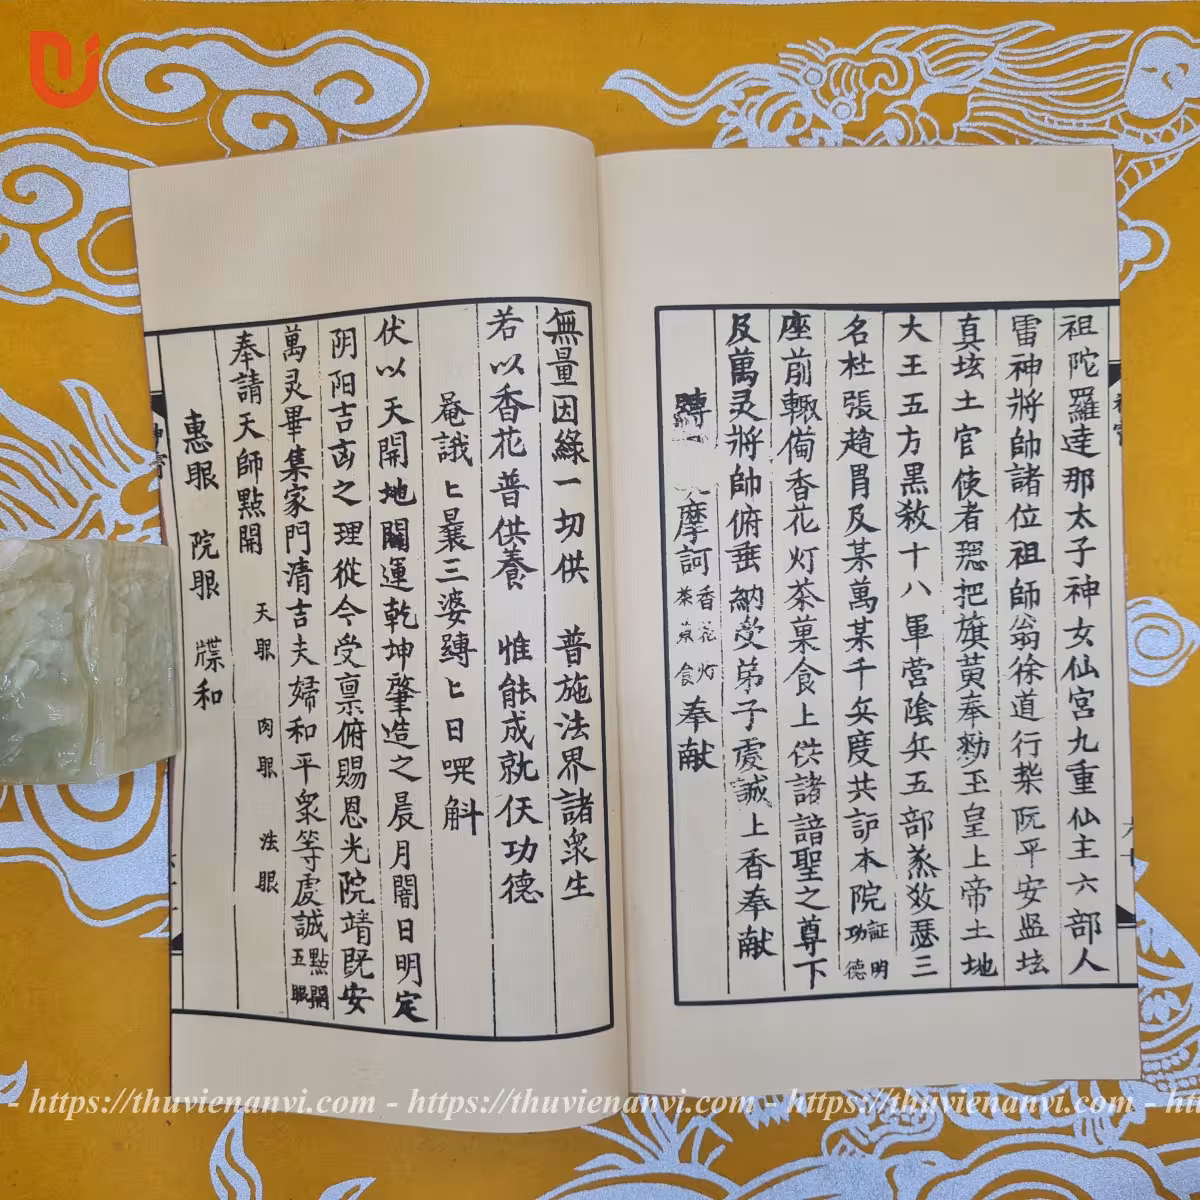 祖陀羅達那太子神女仙宮九重仙主六部人
雷神將帥諸位祖師翁徐道行柴阮平安監坛
真坛土官使者𢚁把旗黄奉勑玉皇上帝土地
大王五方黒殺十八軍营陰兵五部烝殺瑟三
名杜張趙冐及某萬某千兵度共訴本院証明功德
座前輙俻香花灯茶菓食上供諸諳聖之尊下
及萬灵將帥俯垂納受弟子䖍誠上香奉献
摩訶香花灯茶菓食奉献
無量因緣一切供 普施法界諸衆生
若以香花普供養 惟能成就伏功德
菴誐匕曩三婆縛匕日哫斛
伏以天開地闢運乾坤肇造之晨月闇日明定
阴阳吉㐫之理從今受禀俯賜恩光院靖既安
萬灵畢集家門清吉夫婦和平衆等䖍誠點開五眼
奉請天師點開 天眼 肉眼 法眼
惠眼 院眼 牒和
https://thuvienanvi.com - https://thuvienanvi.com - https://thuvienanvi.com